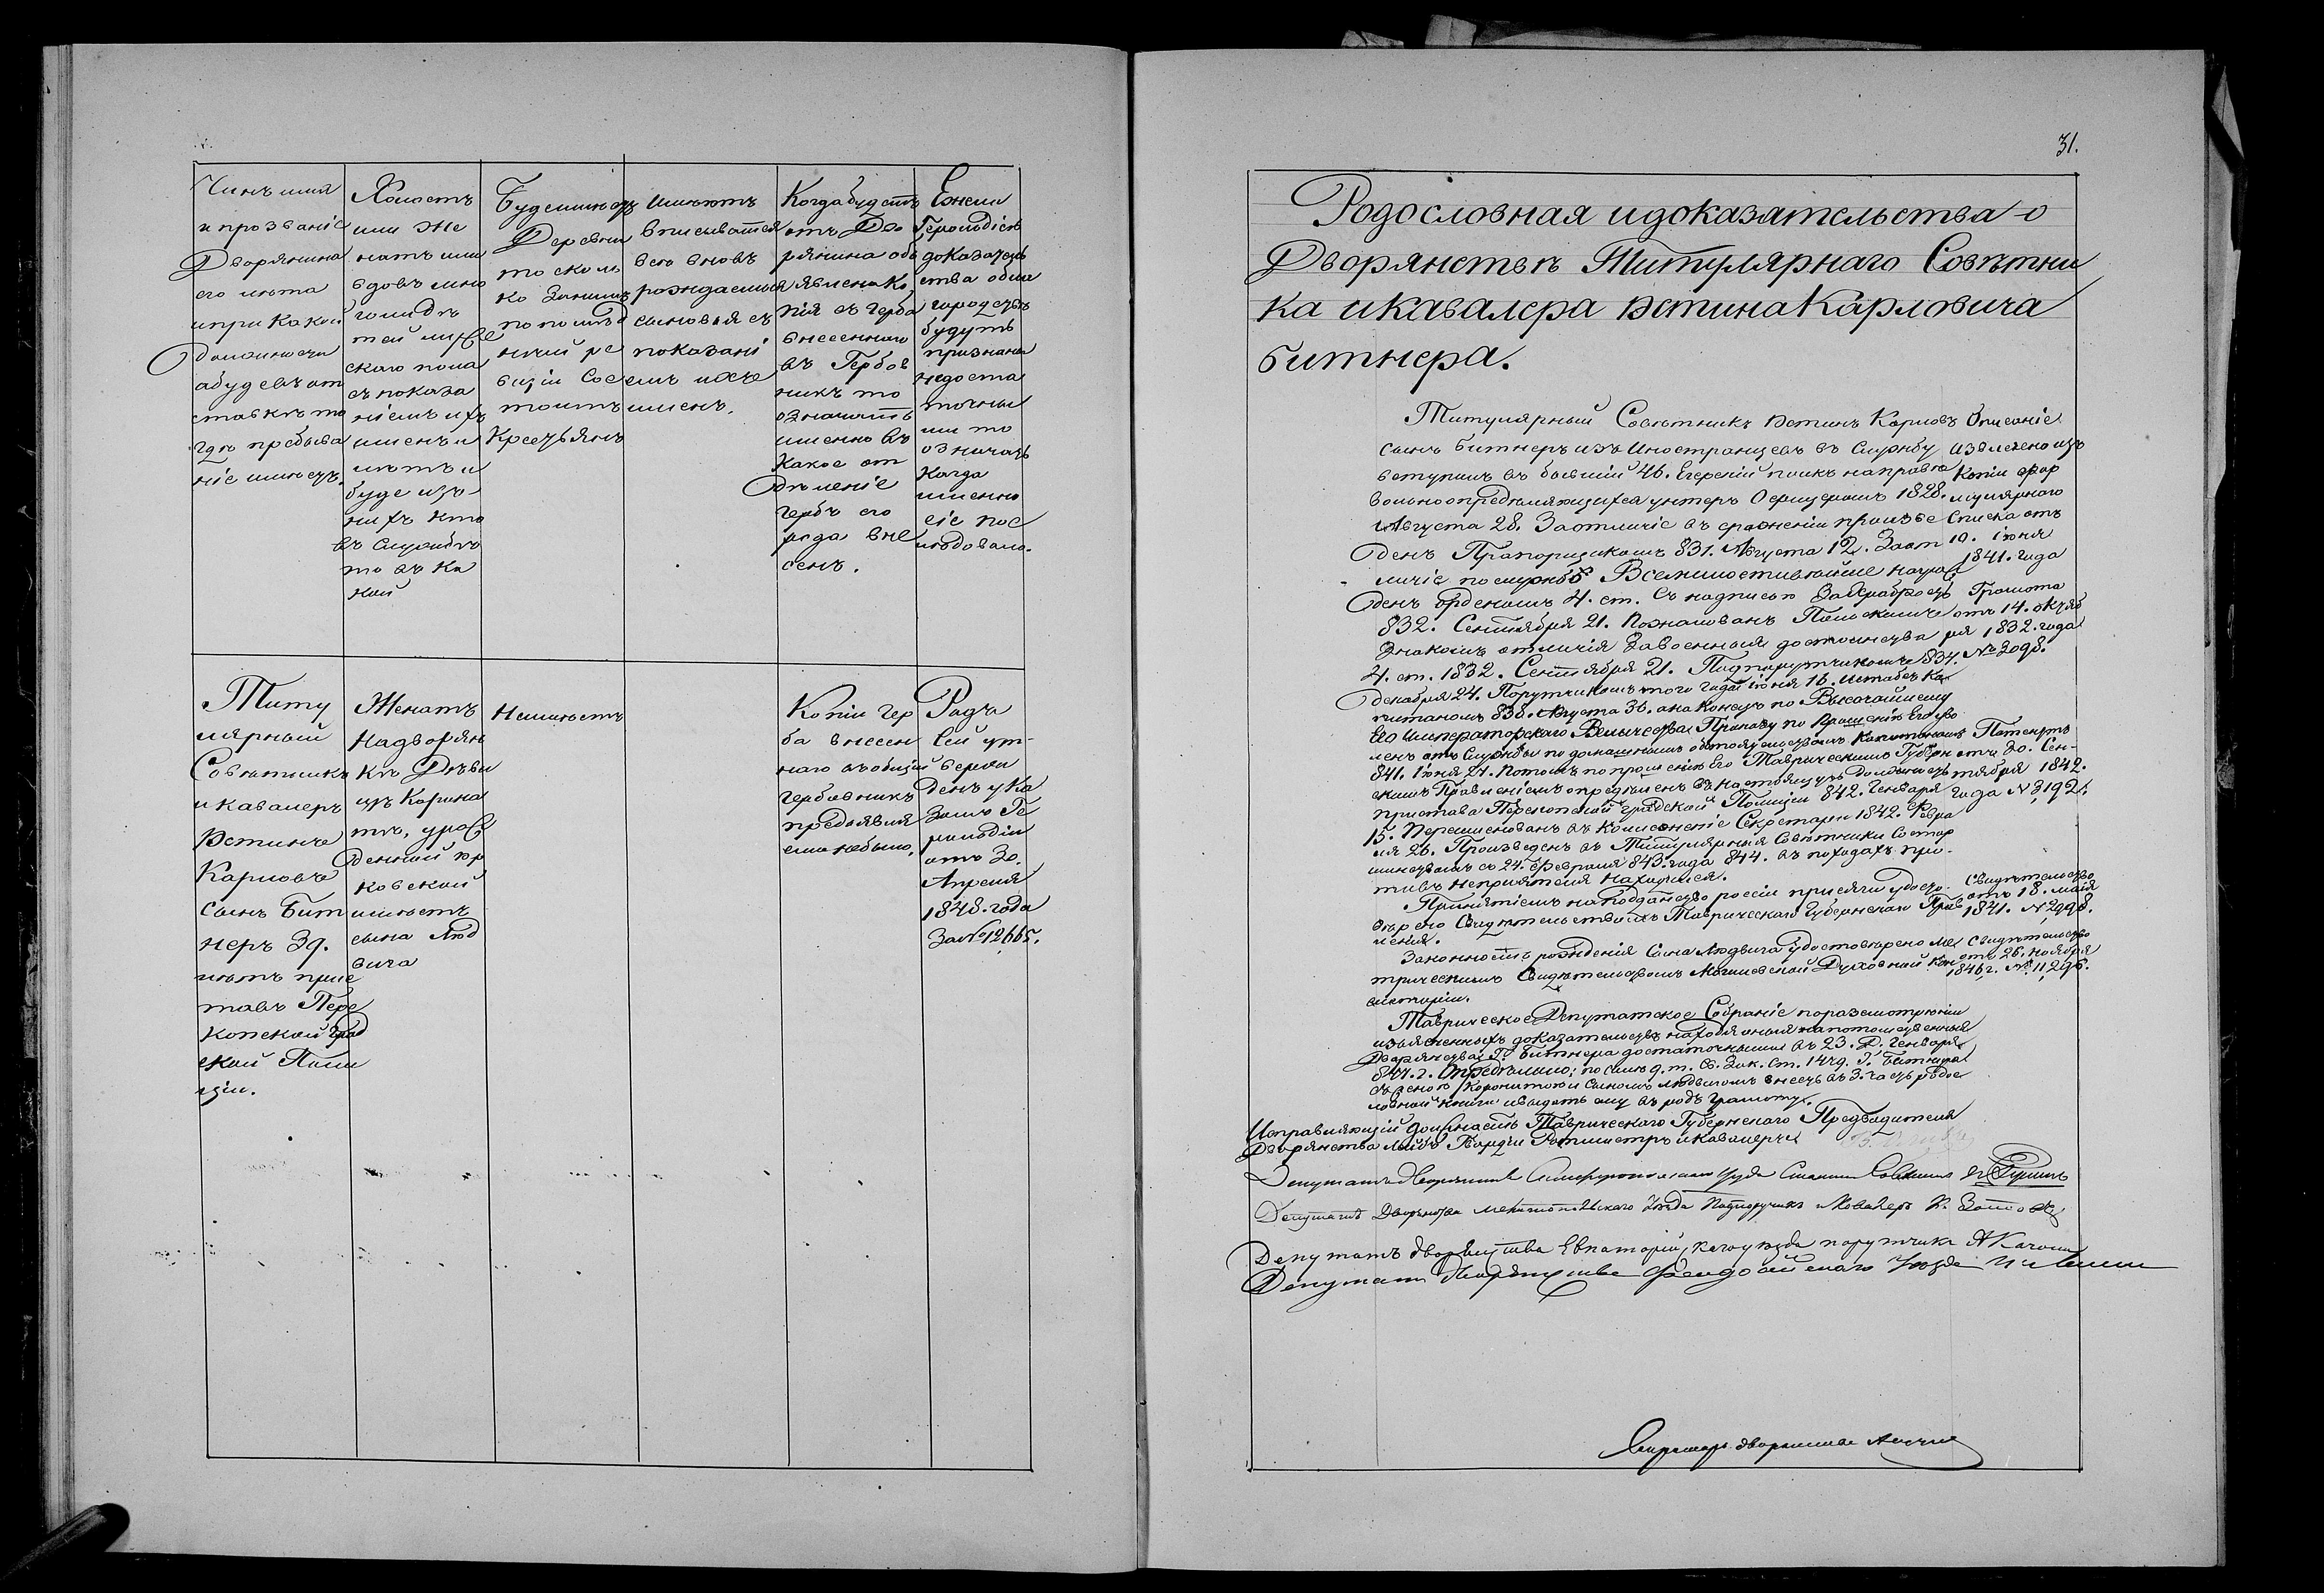 Чинъ имя
и прозваніе
Дворянина
его лѣта
и при какой
должности
а буде въ от
ставкѣ то
гдѣ пребыва
ніе имѣетъ.
Холостъ
или же
натъ или
вдовъ мно
го ли дѣ
тей муже
скаго пола
съ показа
ніемъ ихъ
именъ и
лѣтъ и
буде изъ
нихъ кто
въ службѣ
то въ ка
кой
Буде имѣетъ
Деревни
то сколь
ко за нимъ
по послѣд
ней ре
визіи сос
тоитъ
Крестьянъ
Имѣютъ
вписыватся
всѣ вновь
рождаемыя
сыновья съ
показані
емъ ихъ
именъ.
Когда будетъ
отъ Дво
рянина объ
явлена Ко
пія съ герба
внесеннаго
въ Гербов
никъ то
означить
именно въ
какое от
дѣленіе
гербъ его
рода вне
сенъ.
Ежели
Герольдіею
доказатель
ства обла
городствѣ
будутъ
признаны
недоста
точны
ми то
означать
когда
именно
сіе пос
лѣдовало.
Титу
лярный
Совѣтникъ
и Кавалеръ
Юстинъ
Карловъ
сынъ Бит
неръ 39.
лѣтъ прис
тавъ Пере
копской град
ской Поли
ціи.
Женатъ
на дворян
кѣ Дѣви
цѣ Корина
тѣ, урож
денной Юр
ковской
имѣетъ
сына Люд
вига
Неимѣетъ
Копіи гер
ба внесен
наго въ общій
гербовникъ
предъявля
емо небыло.
Родъ
сей ут-
верж
денъ ука
зомъ Ге
рольдіи
отъ 30.
Апреля
1848. года
за № 12665.
31.
Родословная и доказательства о
Дворянствѣ Титулярнаго Совѣтни
ка и кавалера Юстина Карловича
Битнера.
Титулярный Совѣтникъ Юстинъ Карловъ
сынъ Битнеръ изъ Иностранцевъ въ Службу
вступилъ въ бывшій 46. Егерскій полкъ на правѣ
вольноопредѣляющихся унтеръ Офицеромъ 1828.
Августа 28. За отличіе въ сраженіи произве
денъ Прапорщикомъ 831. Августа 12. За от
личіе по службѣ Всемилостивѣйше награж
денъ Орденомъ 4. ст. Съ надписью За Храбрость
832. Сентября 21. Пожалованъ Польскимъ
Знакомъ отличія За военныя достоинства
4. ст. 1832. Сентября 21. Подпоручикомъ 834.
Декабря 24. Порутчикомъ того года Іюня 16. Штабсъ Ка
питаномъ 838. Августа 30. а на конецъ по Высочайшему
Его Императорскаго Величества Приказу по прошенію Его уво
ленъ отъ Службы по домашнимъ обстоятельствамъ Капитаномъ
841. Іюня 21. Потомъ по прошенію Его Таврическимъ Губерн
скимъ Правленіемъ опредѣленъ въ настоящую должность
пристава Перекопской градской Полиціи 842. Генваря
15. Переименованъ въ Колежскіе Секретари 1842. Февра
ля 26. Произведенъ въ Титулярныя Совѣтники со стар
шинствомъ съ 24. Февраля 843. года 844. въ походахъ про-
тивъ непріятеля находился.
Описаніе
извлечено изъ
Копіи фор
мулярнаго
Списка отъ
10. Іюня
1841. года
Грамота
отъ 14. октяб
ря 1832. года
№ 3098.
Патентъ
отъ 30. Сен-
тября 1842.
года № 3,192.
Принятіемъ на подданство россіи присяги удосто
вѣрено Свидѣтельствомъ Таврическаго Губернскаго Прав
ленія.
Свидѣтельство
отъ 18. маія
1841. № 2998.
Законность рожденія Сына Людвига удостовѣрено Ме
трическимъ Свидѣтельствомъ Могилевской Духовной Кон
систоріи.
Свидѣтельство
отъ 26. ноября
1846 г. № 11,296.
Таврическое Депутатское Собраніе по разсмотрѣніи
изъясненныхъ доказательствъ находя оныя на потомственный
Дворянства Г. Битнера достаточными въ 23. Д. Генваря
847. г. Опредѣлило: по силѣ 9. т. Св. Зак. Ст. 1429. Г. Битнера
съ женою Коронитою и Сыномъ Людвигомъ внесть въ 3. часть родос
ловной книги и выдать ему въ родъ грамоту.
Исправляющій должность Таврическаго Губернскаго Предводителя
Дворянства Лейбъ Гвардіи Ротмистръ и Кавалеръ
Депутатъ Дворянства Симферопольскаго Уѣзда
Депутатъ Дворянства Мелитопольскаго Уѣзда Подпоручикъ и Кавалеръ
Депутатъ дворянства Евпаторійскаго уѣзда порутчикъ
Депутатъ Дворянства Феодосійскаго Уѣзда
Секретарь дворянства